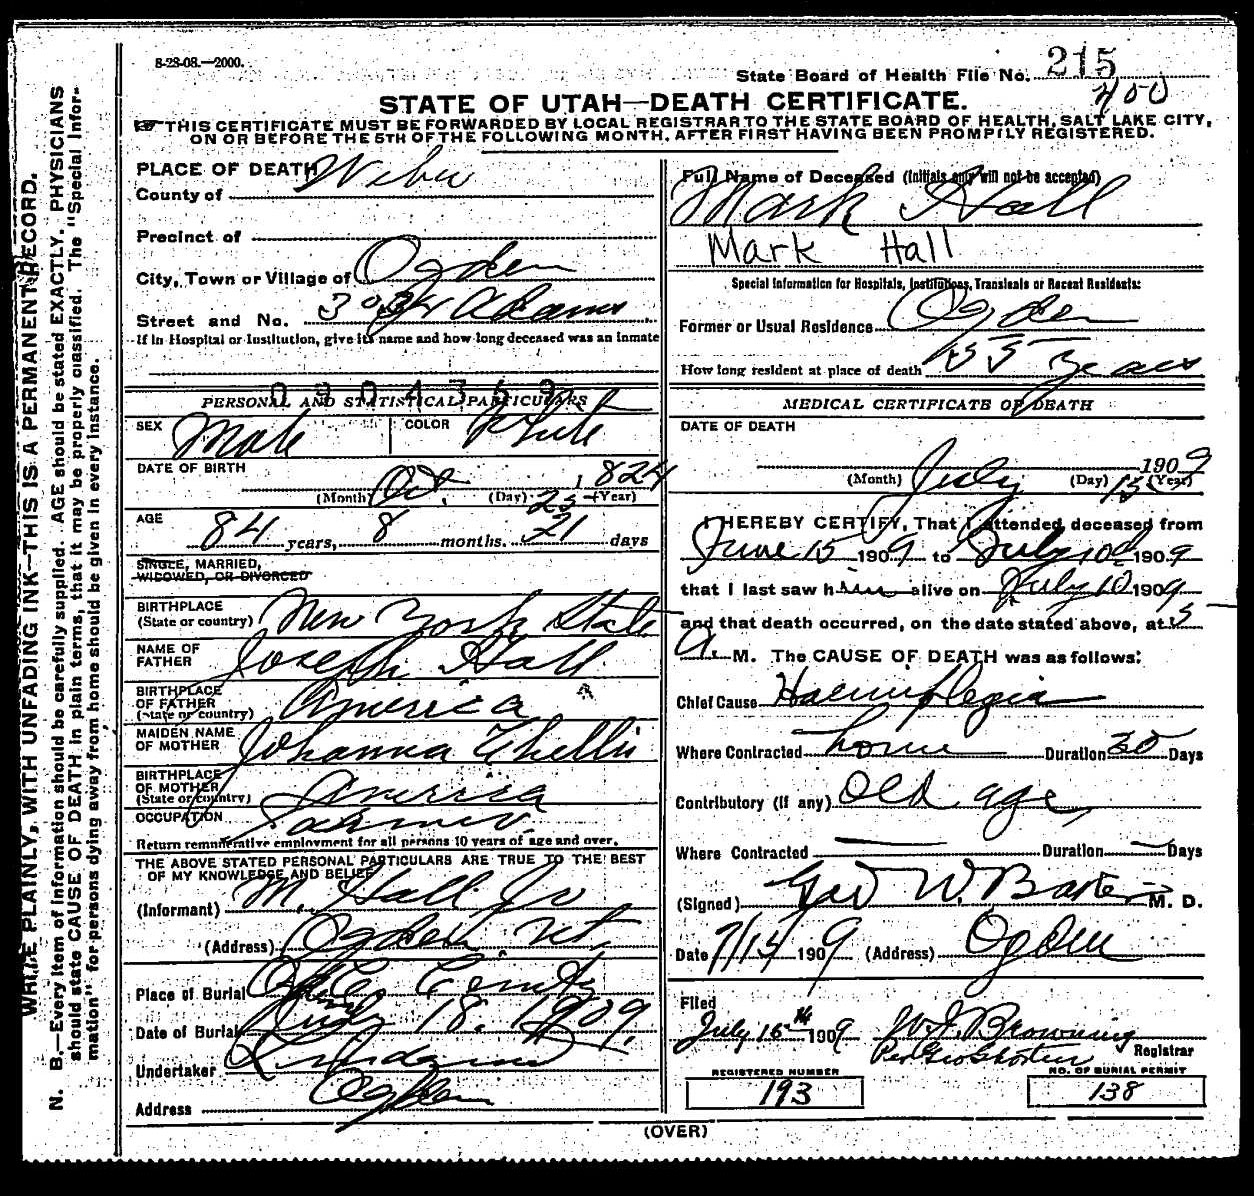 8-28-08.—2000.
State Board of Health File No. 215
400
STATE OF UTAH—DEATH CERTIFICATE.
THIS CERTIFICATE MUST BE FORWARDED BY LOCAL REGISTRAR TO THE STATE BOARD OF HEALTH, SALT LAKE CITY,
ON OR BEFORE THE 5TH OF THE FOLLOWING MONTH, AFTER FIRST HAVING BEEN PROMPTLY REGISTERED.
WRITE PLAINLY, WITH UNFADING INK—THIS IS A PERMANENT RECORD.
N. B.—Every item of information should be carefully supplied. AGE should be stated EXACTLY. PHYSICIANS
should state CAUSE OF DEATH in plain terms, that it may be properly classified. The "Special Infor-
mation" for persons dying away from home should be given in every instance.
PLACE OF DEATH
County of Weber
Precinct of
City, Town or Village of Ogden
Street and No. Adams
If in Hospital or Institution, give its name and how long deceased was an inmate
0904769
PERSONAL AND STATISTICAL PARTICULARS
SEX Male COLOR White
DATE OF BIRTH
(Month) Oct. (Day) 25 (Year) 1824
AGE
84 years, 8 months. 21 days
SINGLE, MARRIED,
WIDOWED, OR DIVORCED
BIRTHPLACE
(State or country) New York State
NAME OF
FATHER Joseph Hall
BIRTHPLACE
OF FATHER
(State or country) America
MAIDEN NAME
OF MOTHER Johanna
BIRTHPLACE
OF MOTHER
(State or country) America
OCCUPATION Farmer.
Return remunerative employment for all persons 10 years of age and over.
THE ABOVE STATED PERSONAL PARTICULARS ARE TRUE TO THE BEST
OF MY KNOWLEDGE AND BELIEF
(Informant) M. Hall Jr
(Address) Ogden Ut,
Place of Burial
Date of Burial July 18. 1909.
Undertaker
Address Ogden
Full Name of Deceased (Initials only will not be accepted)
Mark Hall
Mark Hall
Special Information for Hospitals, Institutions, Transients or Recent Residents:
Former or Usual Residence Ogden
How long resident at place of death 55 Years
MEDICAL CERTIFICATE OF DEATH
DATE OF DEATH
(Month) July (Day) 15 (Year) 1909
I HEREBY CERTIFY, That I attended deceased from
June 15 1909 to July 10 1909
that I last saw him alive on July 10 1909
and that death occurred, on the date stated above, at 5
A. M. The CAUSE OF DEATH was as follows:
Chief Cause Haemiplegia
Where Contracted home Duration 30 Days
Contributory (if any) Old age,
Where Contracted — Duration — Days
(Signed) Geo W. Baker M. D.
Date 7/15 1909 (Address) Ogden
Filed
July 16th 1909 W. J. Browning
Registrar
REGISTERED NUMBER
193
NO. OF BURIAL PERMIT
138
(OVER)